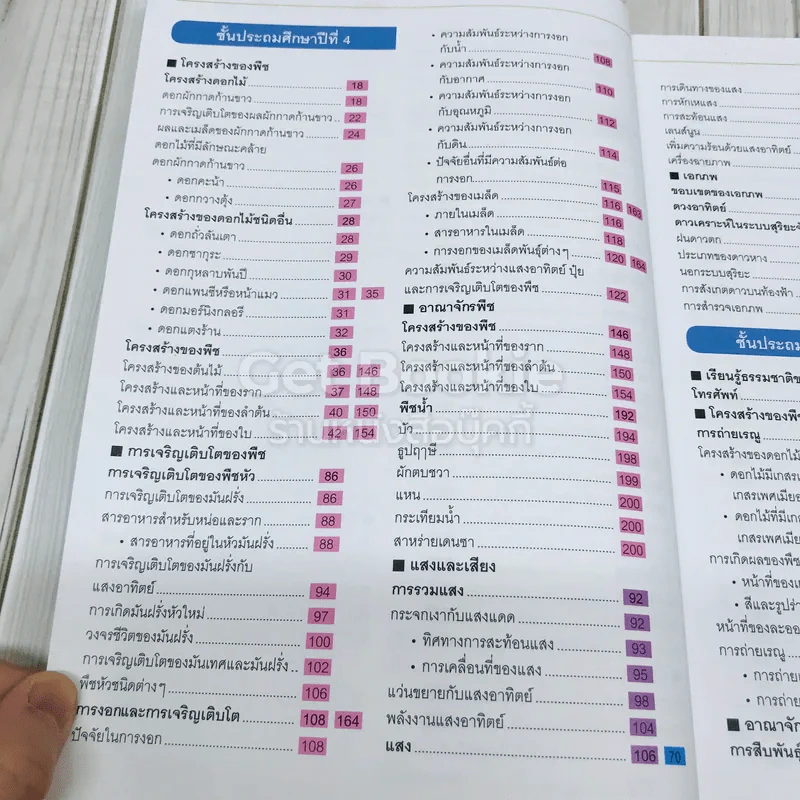 ชั้นประถมศึกษาปีที่ 4
■ โครงสร้างของพืช
โครงสร้างดอกไม้ 18
ดอกผักกาดก้านขาว 18
การเจริญเติบโตของผลผักกาดก้านขาว 22
ผลและเมล็ดของผักกาดก้านขาว 24
ดอกไม้ที่มีลักษณะคล้าย
ดอกผักกาดก้านขาว 26
• ดอกคะน้า 26
• ดอกกวางตุ้ง 27
โครงสร้างของดอกไม้ชนิดอื่น 28
• ดอกถั่วลันเตา 28
• ดอกซากุระ 29
• ดอกกุหลาบพันปี 30
• ดอกแพนซีหรือหน้าแมว 31 35
• ดอกมอร์นิงกลอรี 31
• ดอกแตงร้าน 32
โครงสร้างของพืช 36
โครงสร้างของต้นไม้ 36 146
โครงสร้างและหน้าที่ของราก 37 148
โครงสร้างและหน้าที่ของลำต้น 40 150
โครงสร้างและหน้าที่ของใบ 42 154
■ การเจริญเติบโตของพืช
การเจริญเติบโตของพืชหัว 86
การเจริญเติบโตของมันฝรั่ง 86
สารอาหารสำหรับหน่อและราก 88
• สารอาหารที่อยู่ในหัวมันฝรั่ง 88
การเจริญเติบโตของมันฝรั่งกับ
แสงอาทิตย์ 94
การเกิดมันฝรั่งหัวใหม่ 97
วงจรชีวิตของมันฝรั่ง 100
การเจริญเติบโตของมันเทศและมันฝรั่ง 102
พืชหัวชนิดต่างๆ 106
การงอกและการเจริญเติบโต 108 164
ปัจจัยในการงอก 108
• ความสัมพันธ์ระหว่างการงอก
กับน้ำ 108
• ความสัมพันธ์ระหว่างการงอก
กับอากาศ 110
• ความสัมพันธ์ระหว่างการงอก
กับอุณหภูมิ 112
• ความสัมพันธ์ระหว่างการงอก
กับดิน 114
• ปัจจัยอื่นที่มีความสัมพันธ์ต่อ
การงอก 115
โครงสร้างของเมล็ด 116 163
• ภายในเมล็ด 116
• สารอาหารในเมล็ด 118
• การงอกของเมล็ดพันธุ์ต่างๆ 120 164
ความสัมพันธ์ระหว่างแสงอาทิตย์ ปุ๋ย
และการเจริญเติบโตของพืช 122
■ อาณาจักรพืช
โครงสร้างของพืช 146
โครงสร้างและหน้าที่ของราก 148
โครงสร้างและหน้าที่ของลำต้น 150
โครงสร้างและหน้าที่ของใบ 154
พืชน้ำ 192
บัว 194
ธูปฤาษี 198
ผักตบชวา 199
แหน 200
กระเทียมน้ำ 200
สาหร่ายเดนซา 200
■ แสงและเสียง
การรวมแสง 92
กระจกเงากับแสงแดด 92
• ทิศทางการสะท้อนแสง 93
• การเคลื่อนที่ของแสง 95
แว่นขยายกับแสงอาทิตย์ 98
พลังงานแสงอาทิตย์ 104
แสง 106 70
การเดินทางของแสง
การหักเหแสง
การสะท้อนแสง
เลนส์นูน
เพิ่มความร้อนด้วยแสงอาทิตย์
เครื่องฉายภาพ
■ เอกภพ
ขอบเขตของเอกภพ
ดวงอาทิตย์
ดาวเคราะห์ในระบบสุริยะ
ฝนดาวตก
ประเภทของดาวหาง
นอกระบบสุริยะ
การสังเกตดาวบนท้องฟ้า
การสำรวจเอกภพ
ชั้นประถม
■ เรียนรู้ธรรมชาติ
โทรศัพท์
■ โครงสร้างของพืช
การถ่ายเรณู
โครงสร้างของดอกไม้
• ดอกไม้มีเกสร
เกสรเพศเมีย
• ดอกไม้ที่มี
เกสรเพศเมีย
การเกิดผลของพืช
• หน้าที่ของ
• สีและรูปร่าง
หน้าที่ของละออง
การถ่ายเรณู
• การถ่าย
• การถ่าย
■ อาณาจักร
การสืบพันธุ์
Get Bookie
ร้านหนังสือบุ๊คกี้